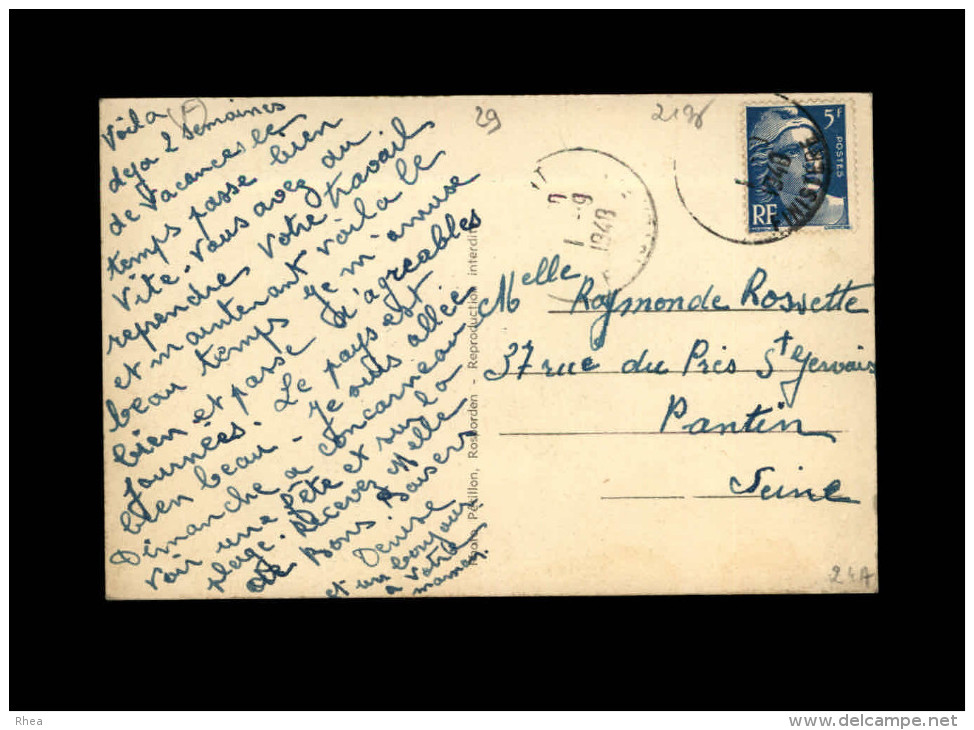 Voila (F)
deja 2 semaines
de Vacances le
temps passe bien
Vite. Vous avez du
reprendre Votre travail
et maintenant voila le
beau temps je m'amuse
bien et passe d'agreables
Journées. Le pays est
bien beau. Je suis allée
Dimanche a Concarneau
voir une fête et sur la
plage. Recevez Melle
de Bons Baisers
Denise
et un bonjour
a Votre
maman.
29
2196
5F
POSTES
RF
FINISTERE
1-9
1948
Photo Périllon, Rosporden - Reproduction interdite
Melle Raymonde Rossette
37 rue du Près St Gervais
Pantin
Seine
24A
Rhea
www.delcampe.net